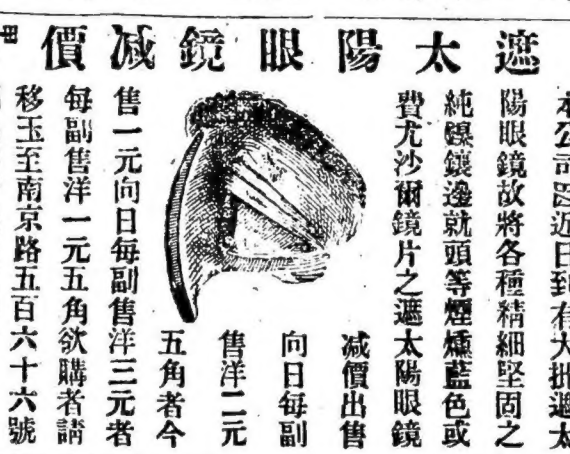 遮太陽眼鏡減價
本公司因近日到有大批遮太
陽眼鏡故將各種精細堅固之
純鎳鑲邊就頭等煙燻藍色或
費尤沙爾鏡片之遮太陽眼鏡
減價出售
向日每副
售洋二元
五角者今
售一元向日每副售洋三元者
每副售洋一元五角欲購者請
移玉至南京路五百六十六號